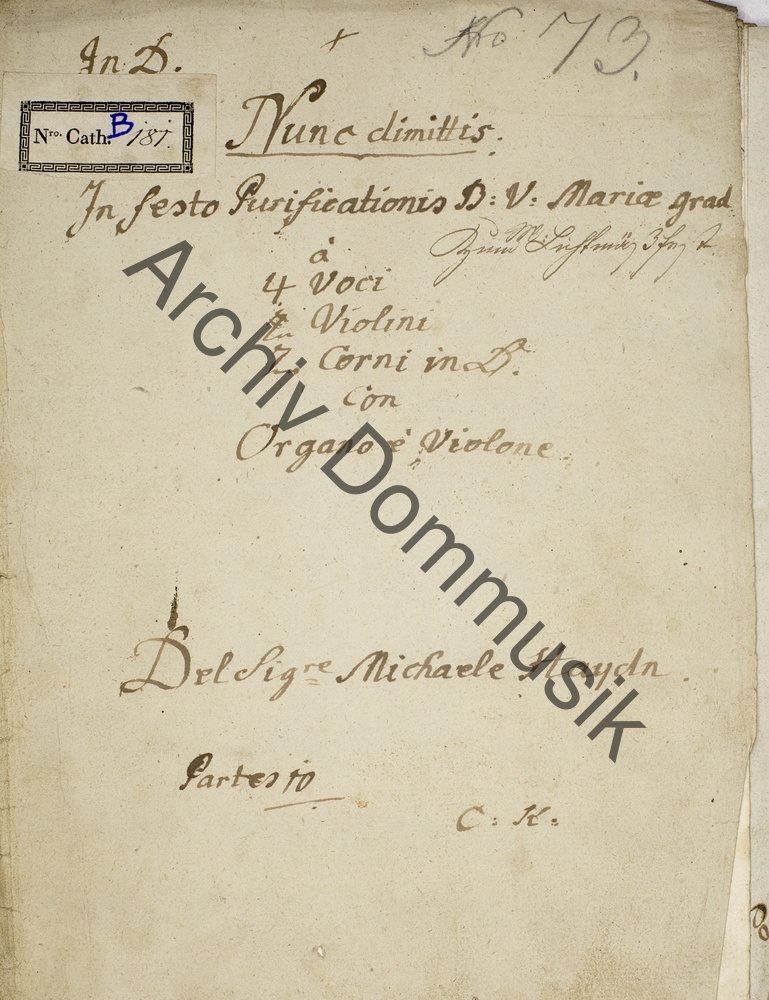 In D.
No 73.
Nro. Cath. B 181.
Nunc dimittis.
In festo Purificationis B: V: Mariæ grad
Zum Lichtmäß Fest
à
4 Voci
2 Violini
2 Corni in D.
Con
Organo è Violone
Del Sigre Michaele Haydn.
Partes 10
C: K:
Archiv Dommusik